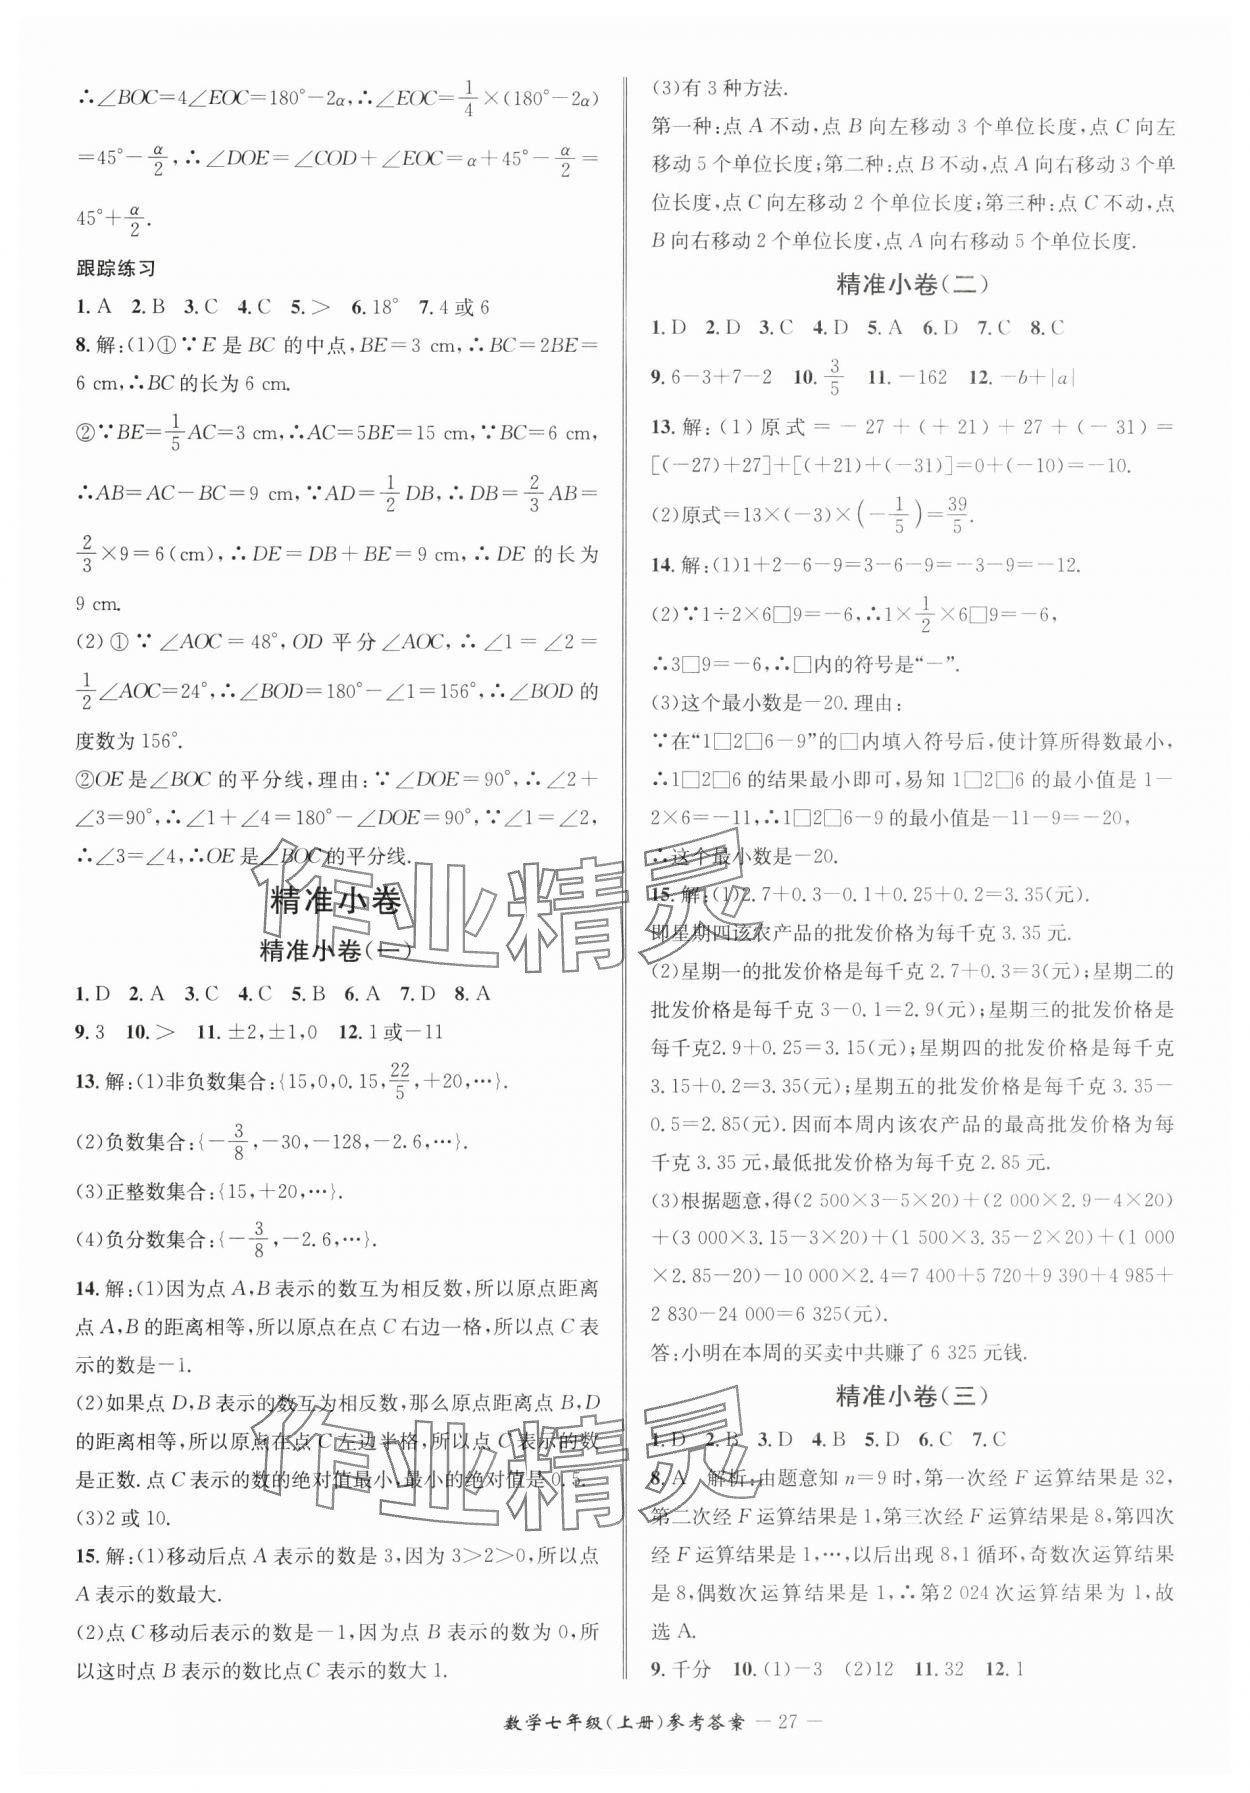 ∴∠BOC=4∠EOC=180°-2α,∴∠EOC=1/4×(180°-2α)
=45°-α/2,∴∠DOE=∠COD+∠EOC=α+45°-α/2=
45°+α/2.
跟踪练习
1. A 2. B 3. C 4. C 5. > 6. 18° 7. 4 或 6
8. 解:(1)①∵E 是 BC 的中点,BE=3 cm,∴BC=2BE=
6 cm,∴BC的长为 6 cm.
②∵BE=1/5AC=3 cm,∴AC=5BE=15 cm,∵BC=6 cm,
∴AB=AC-BC=9 cm,∵AD=1/2DB,∴DB=2/3AB=
2/3×9=6(cm),∴DE=DB+BE=9 cm,∴DE 的长为
9 cm.
(2)①∵∠AOC=48°,OD 平分∠AOC,∴∠1=∠2=
1/2∠AOC=24°,∴∠BOD=180°-∠1=156°,∴∠BOD的
度数为 156°.
②OE是∠BOC 的平分线,理由:∵∠DOE=90°,∴∠2+
∠3=90°,∴∠1+∠4=180°-∠DOE=90°,∵∠1=∠2,
∴∠3=∠4,∴OE是∠BOC的平分线.
精准小卷
精准小卷(一)
1. D 2. A 3. C 4. C 5. B 6. A 7. D 8. A
9. 3 10. > 11. ±2,±1,0 12. 1 或-11
13. 解:(1)非负数集合:{15,0,0.15,22/5,+20,…}.
(2)负数集合:{-3/8,-30,-128,-2.6,…}.
(3)正整数集合:{15,+20,…}.
(4)负分数集合:{-3/8,-2.6,…}.
14. 解:(1)因为点 A,B 表示的数互为相反数,所以原点距离
点 A,B的距离相等,所以原点在点 C 右边一格,所以点 C 表
示的数是-1.
(2)如果点 D,B 表示的数互为相反数,那么原点距离点 B,D
的距离相等,所以原点在点 C 左边半格,所以点 C 表示的数
是正数.点 C 表示的数的绝对值最小,最小的绝对值是 0.5.
(3)2或 10.
15. 解:(1)移动后点 A 表示的数是 3,因为 3>2>0,所以点
A 表示的数最大.
(2)点 C 移动后表示的数是-1,因为点 B 表示的数为 0,所
以这时点 B 表示的数比点 C 表示的数大 1.
(3)有 3 种方法.
第一种:点 A 不动,点 B 向左移动 3 个单位长度,点 C 向左
移动 5 个单位长度;第二种:点 B 不动,点 A 向右移动 3 个单
位长度,点 C 向左移动 2 个单位长度;第三种:点 C 不动,点
B 向右移动 2 个单位长度,点 A 向右移动 5 个单位长度.
精准小卷(二)
1. D 2. D 3. C 4. D 5. A 6. D 7. C 8. C
9. 6-3+7-2 10. 3/5 11. -162 12. -b+|a|
13. 解:(1)原式=-27+(+21)+27+(-31)=
[(-27)+27]+[(+21)+(-31)]=0+(-10)=-10.
(2)原式=13×(-3)×(-1/5)=39/5.
14. 解:(1)1+2-6-9=3-6-9=-3-9=-12.
(2)∵1÷2×6□9=-6,∴1×1/2×6□9=-6,
∴3□9=-6,∴□内的符号是“-”.
(3)这个最小数是-20.理由:
∵在“1□2□6-9”的□内填入符号后,使计算所得数最小,
∴1□2□6 的结果最小即可,易知 1□2□6 的最小值是 1-
2×6=-11,∴1□2□6-9 的最小值是-11-9=-20,
∴这个最小数是-20.
15. 解:(1)2.7+0.3-0.1+0.25+0.2=3.35(元).
即星期四该农产品的批发价格为每千克 3.35 元.
(2)星期一的批发价格是每千克 2.7+0.3=3(元);星期二的
批发价格是每千克 3-0.1=2.9(元);星期三的批发价格是
每千克2.9+0.25=3.15(元);星期四的批发价格是每千克
3.15+0.2=3.35(元);星期五的批发价格是每千克 3.35-
0.5=2.85(元).因而本周内该农产品的最高批发价格为每
千克 3.35 元,最低批发价格为每千克 2.85 元.
(3)根据题意,得(2 500×3-5×20)+(2 000×2.9-4×20)
+(3 000×3.15-3×20)+(1 500×3.35-2×20)+(1 000
×2.85-20)-10 000×2.4=7 400+5 720+9 390+4 985+
2 830-24 000=6 325(元).
答:小明在本周的买卖中共赚了 6 325 元钱.
精准小卷(三)
1. D 2. B 3. D 4. B 5. D 6. C 7. C
8. A 解析:由题意知 n=9 时,第一次经 F 运算结果是 32,
第二次经 F 运算结果是 1,第三次经 F 运算结果是 8,第四次
经 F 运算结果是 1,…,以后出现 8,1 循环,奇数次运算结果
是 8,偶数次运算结果是 1,∴第 2 024 次运算结果为 1,故
选 A.
9. 千分 10. (1)-3 (2)12 11. 32 12. 1
数学七年级(上册)参考答案 — 27 —
作业精灵
作业精灵